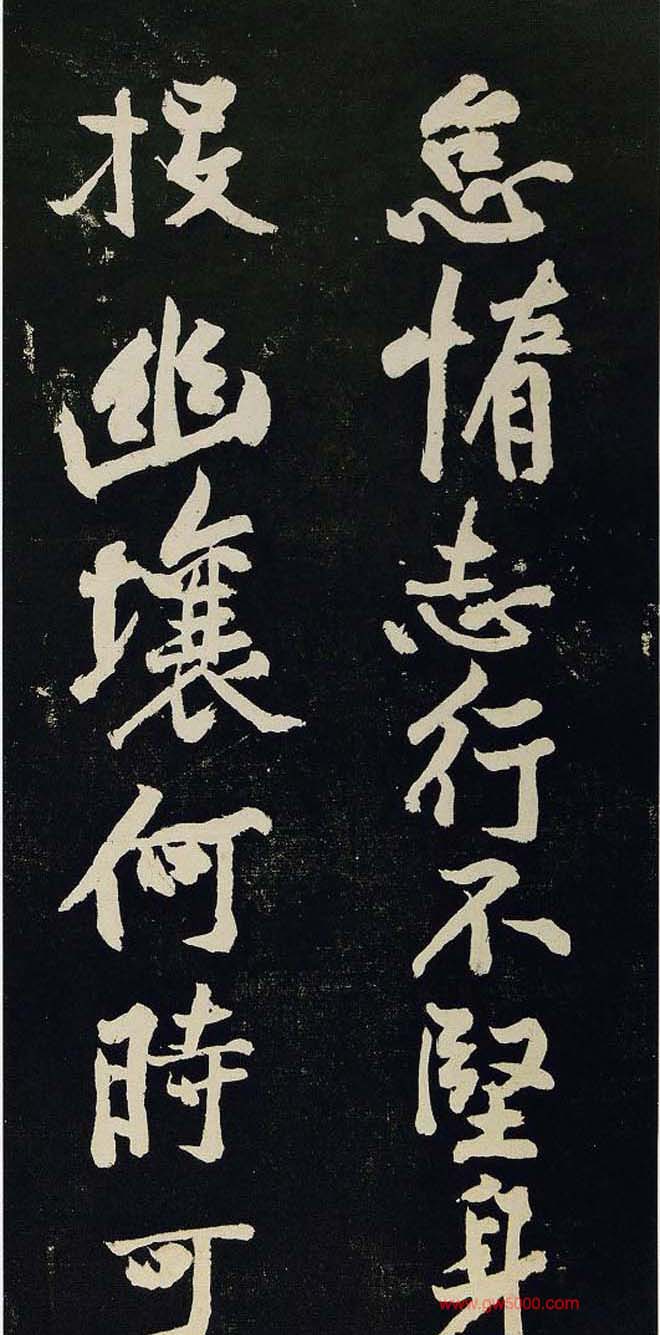 怠惰志行不堅身
投幽壤何時可
www.gw5000.com